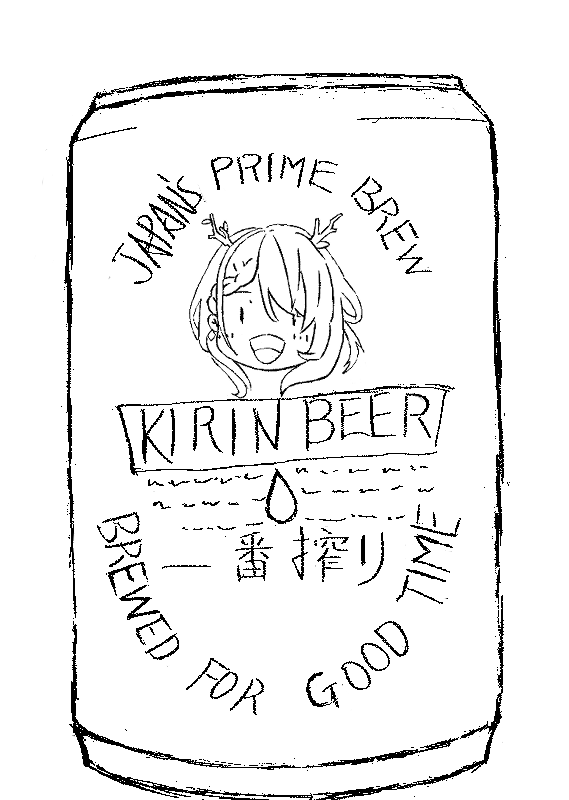 JAPAN'S PRIME BREW
KIRIN BEER
一番搾り
BREWED FOR GOOD TIME